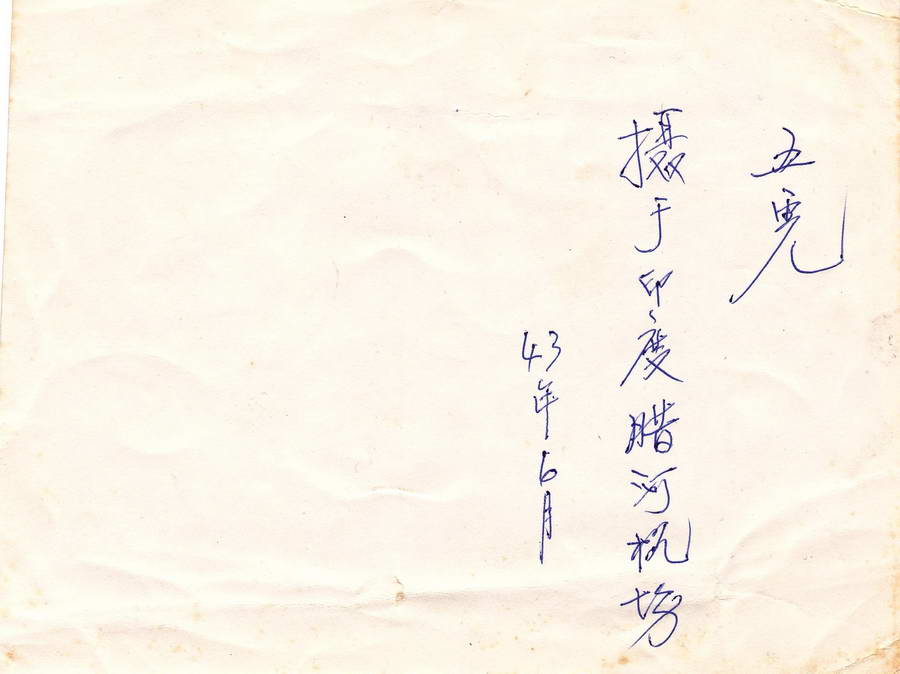 五虎
摄于印度腊河机场
43年6月